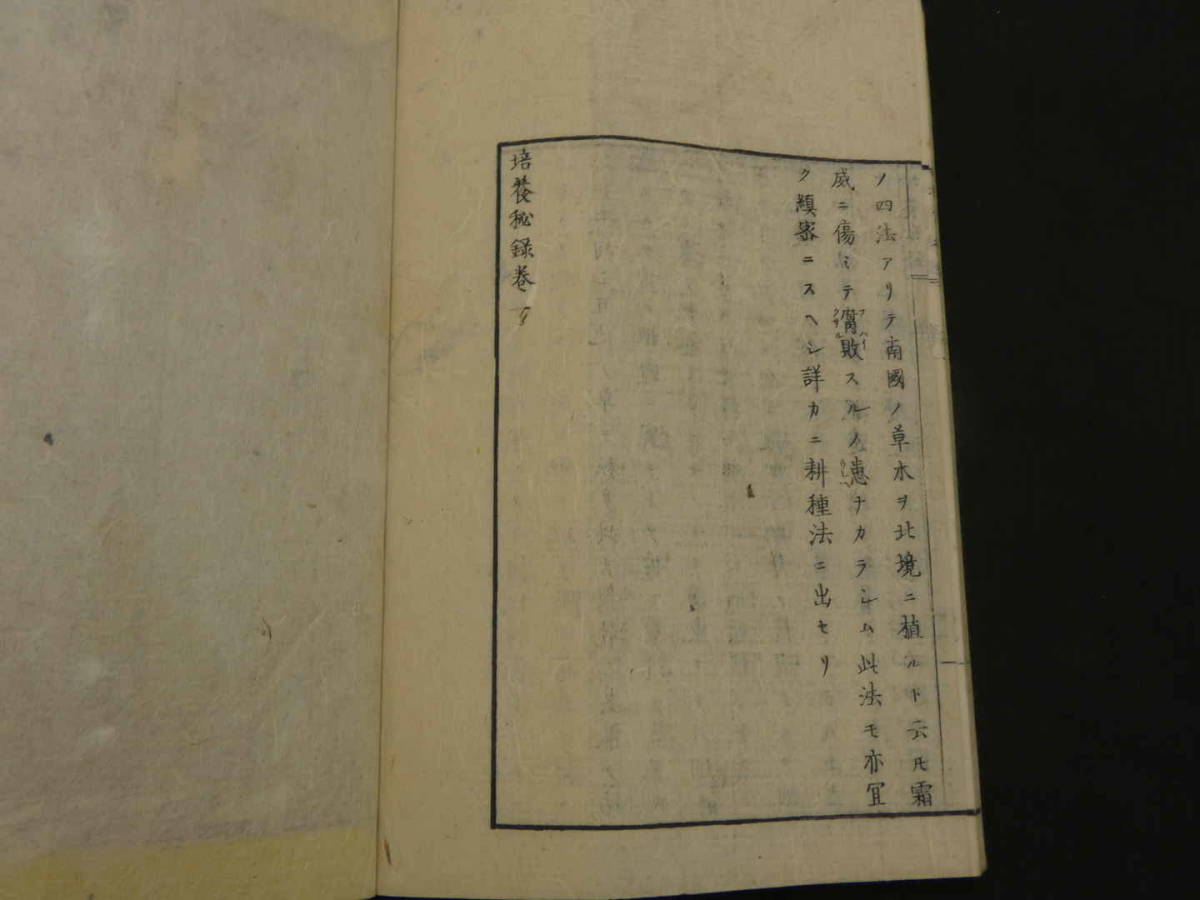 ノ四法アリテ南國ノ草木ヲ北境ニ植ルト云𪜈霜
威ニ傷ミテ腐敗スルノ患ナカラシム此法モ亦宜
ク縝密ニスヘシ詳カニ耕種法ニ出セリ
培養秘録卷